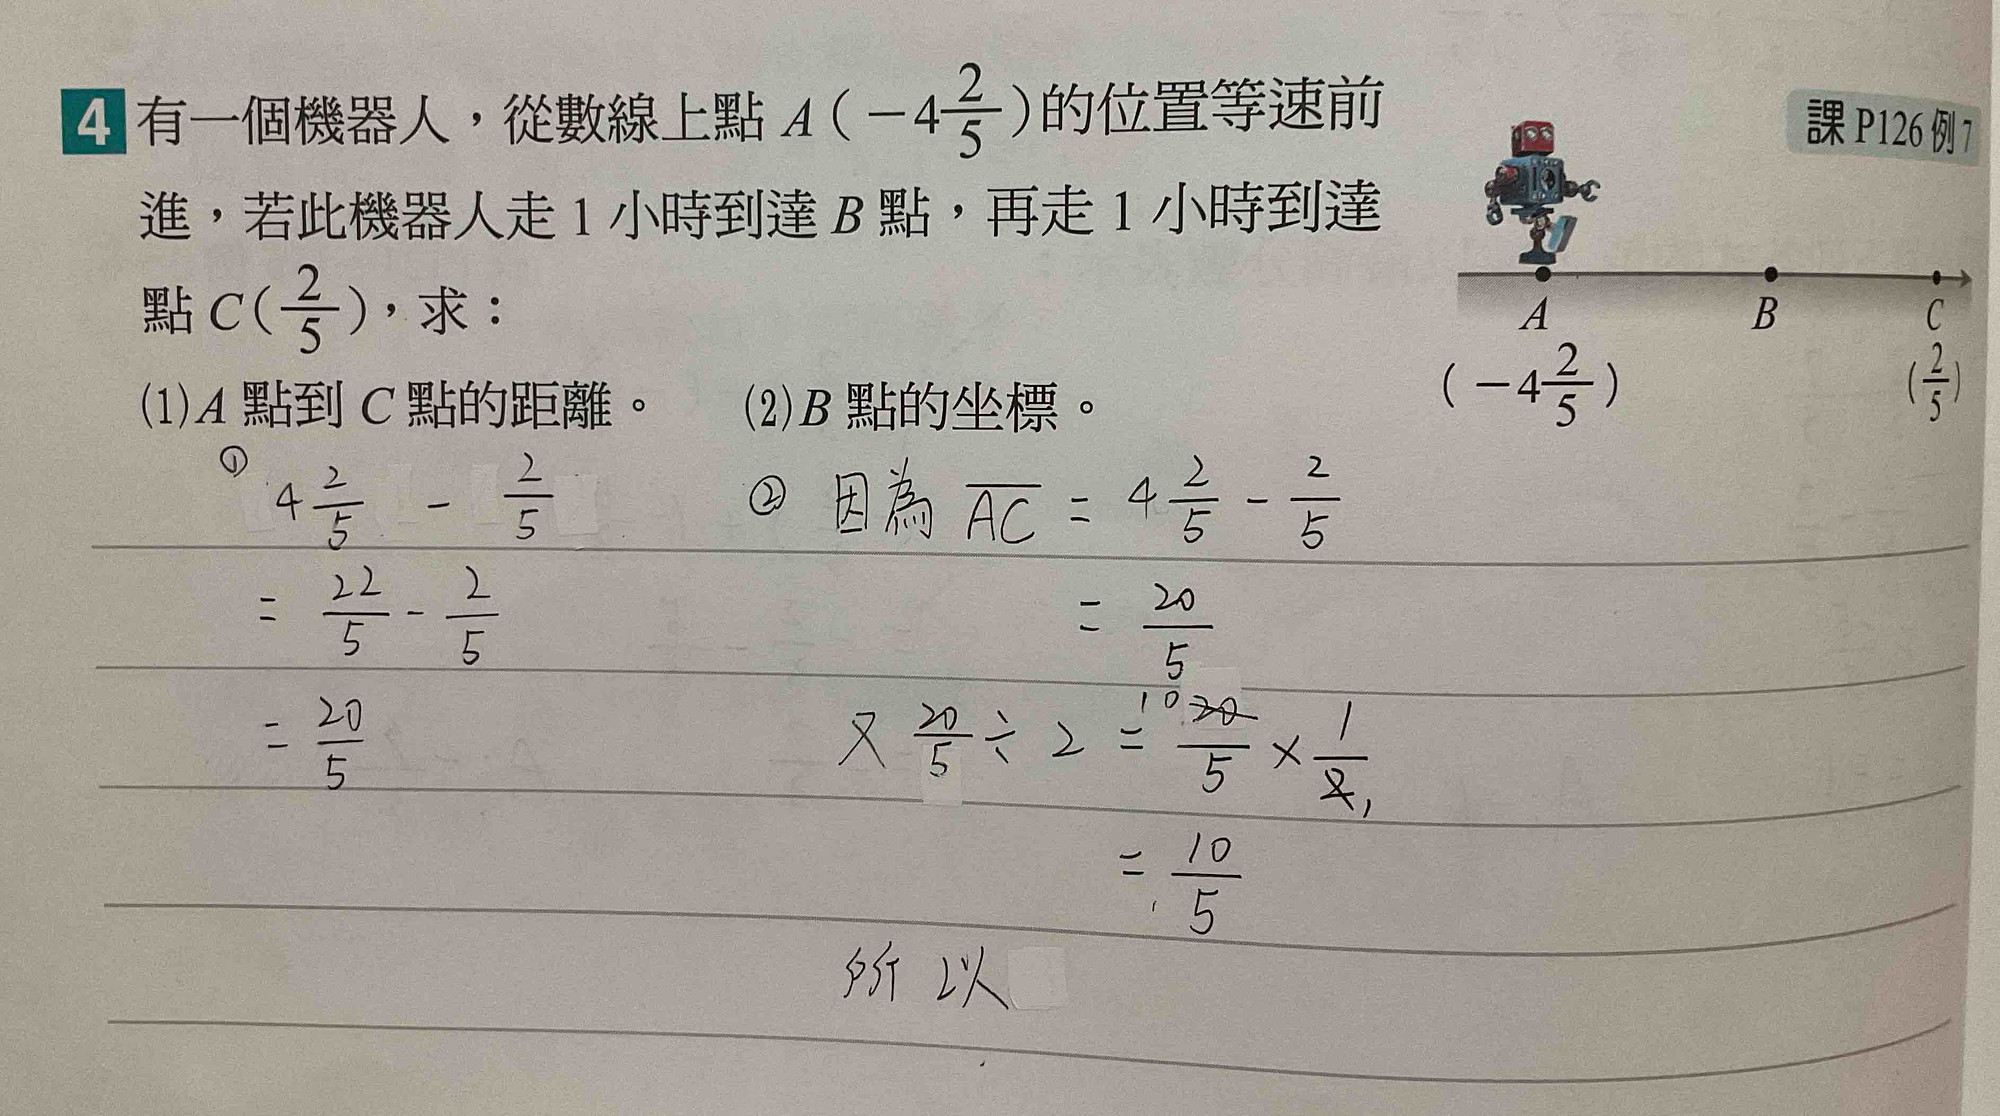 4 有一個機器人，從數線上點 A(－4 2/5)的位置等速前
進，若此機器人走 1 小時到達 B 點，再走 1 小時到達
點 C(2/5)，求：
(1)A 點到 C 點的距離。 (2)B 點的坐標。
課 P126 例 7
A B C
(－4 2/5) (2/5)
① 4 2/5 - 2/5
= 22/5 - 2/5
= 20/5
② 因為 AC = 4 2/5 - 2/5
= 20/5
又 20/5 ÷ 2 = 10 20/5 × 1/2 1
= 10/5
所以